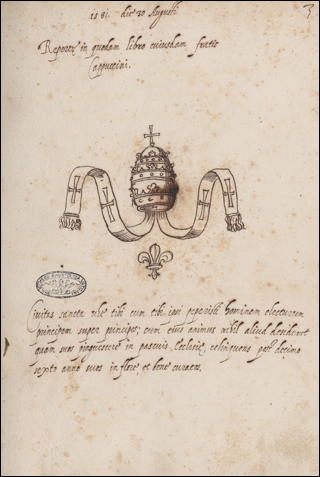 1581. die 20 Augusti
3
Reperta in quodam libro cuiusdam fratis
Cappuccini.
Civitas sancta tibi cum tibi peperisti hominem electorem
principem super principes; cum eius animus nihil aliud desideret
quam suos pinguescere in pascuis Ecclesie, relinquens post decimo
sexto anno suos in flore et bene